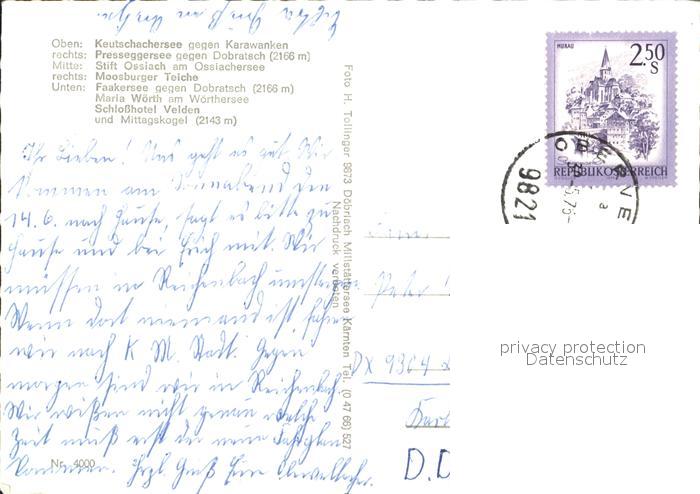 Oben: Keutschachersee gegen Karawanken
rechts: Presseggersee gegen Dobratsch (2166 m)
Mitte: Stift Ossiach am Ossiachersee
rechts: Moosburger Teiche
Unten: Faakersee gegen Dobratsch (2166 m)
Maria Wörth am Wörthersee
Schloßhotel Velden
und Mittagskogel (2143 m)
Ihr Lieben! Uns geht es gut. Wir
kommen am Sonnabend den
14.6. nach Hause, sagt es bitte zu
Hause und bei Erich mit. Wir
müssen in Reichenbach umsteigen
Wenn dort niemand ist fahren
wir nach K. M. Stadt. Gegen
morgen sind wir in Reichenbach.
Wir wißen nicht genau welche
Zeit muß erst der neue Fahrplan
kommen. Herzl. Gruß Eure
Nr. 4000
Foto H. Tollinger 9873 Döbriach Millstättersee Kärnten Tel. (0 47 66) 527
Nachdruck verboten
MURAU
2.50
S
REPUBLIK ÖSTERREICH
OBERVE
9821
a
Peter
DX 9304
D.D
privacy protection
Datenschutz